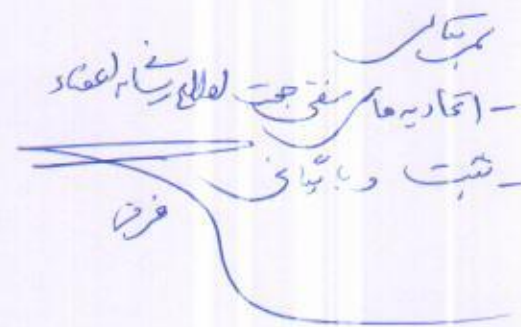 بسمه تعالی
- اتحادیه های صنفی جهت اطلاع رسانی به اعضاء
- ثبت و بایگانی